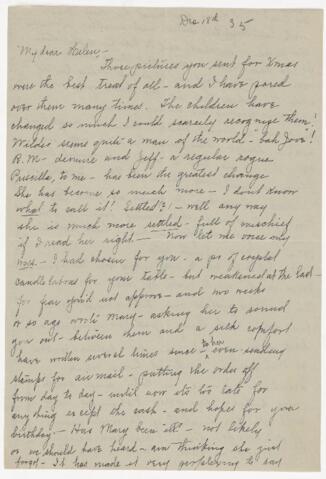 Dec 18th 35
My dear Helen,-
Those pictures you sent for Xmas
were the best treat of all - and I have pored
over them many times. The children have
changed so much I could scarcely recognize them!
Waldo seems quite a man of the world - bah Jove!
B.M. - demure and Jeff - a regular rogue
Priscilla, to me - has been the greatest change
She has become so much more - I don't know
what to call it! Settled?! - well any way
she is much more settled - full of mischief
if I read her right - Now let me once only
- I had chosen for you - a pr of crystal
candelabras for your table - but weakened at the last -
for fear you'd not approve - and two weeks
or so ago wrote Mary - asking her to sound
you out - between them and a silk comfort
have written several times since to her even sending
stamps for air mail - putting the order off
from day to day - until now its too late for
anything except the cash - and hopes for your
birthday - Has Mary been ill - not likely
or we should have heard - am thinking she just
forgot - It has made it very perplexing to say